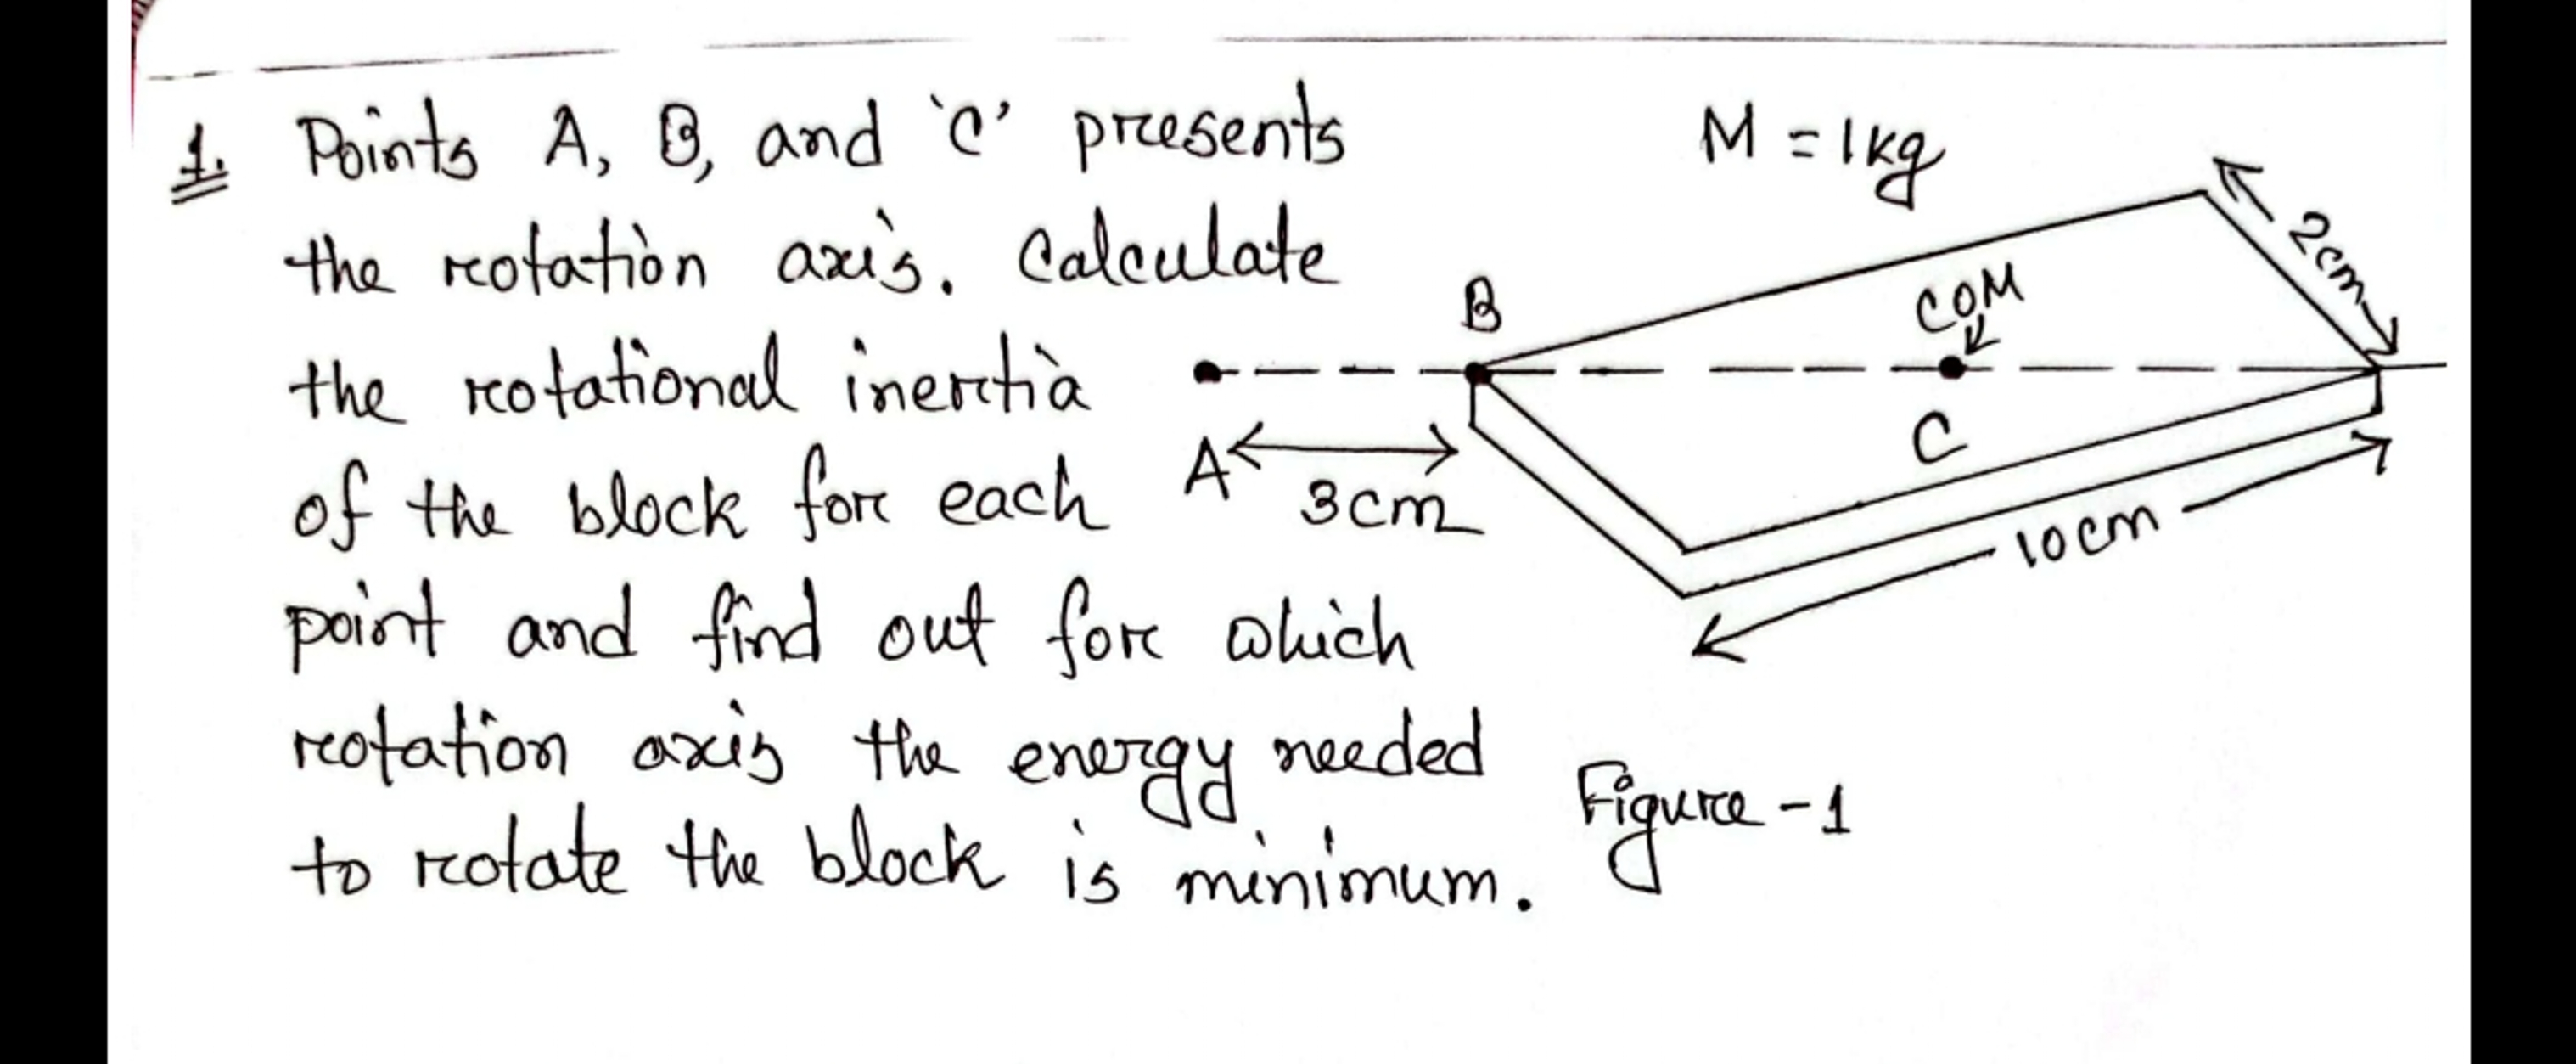 1. Points A, B, and 'C' presents
the rotation axis. Calculate
the rotational inertia
of the block for each
point and find out for which
rotation axis the energy needed
to rotate the block is minimum.
M = 1kg
2cm
COM
B
C
A
3cm
10cm
Figure - 1